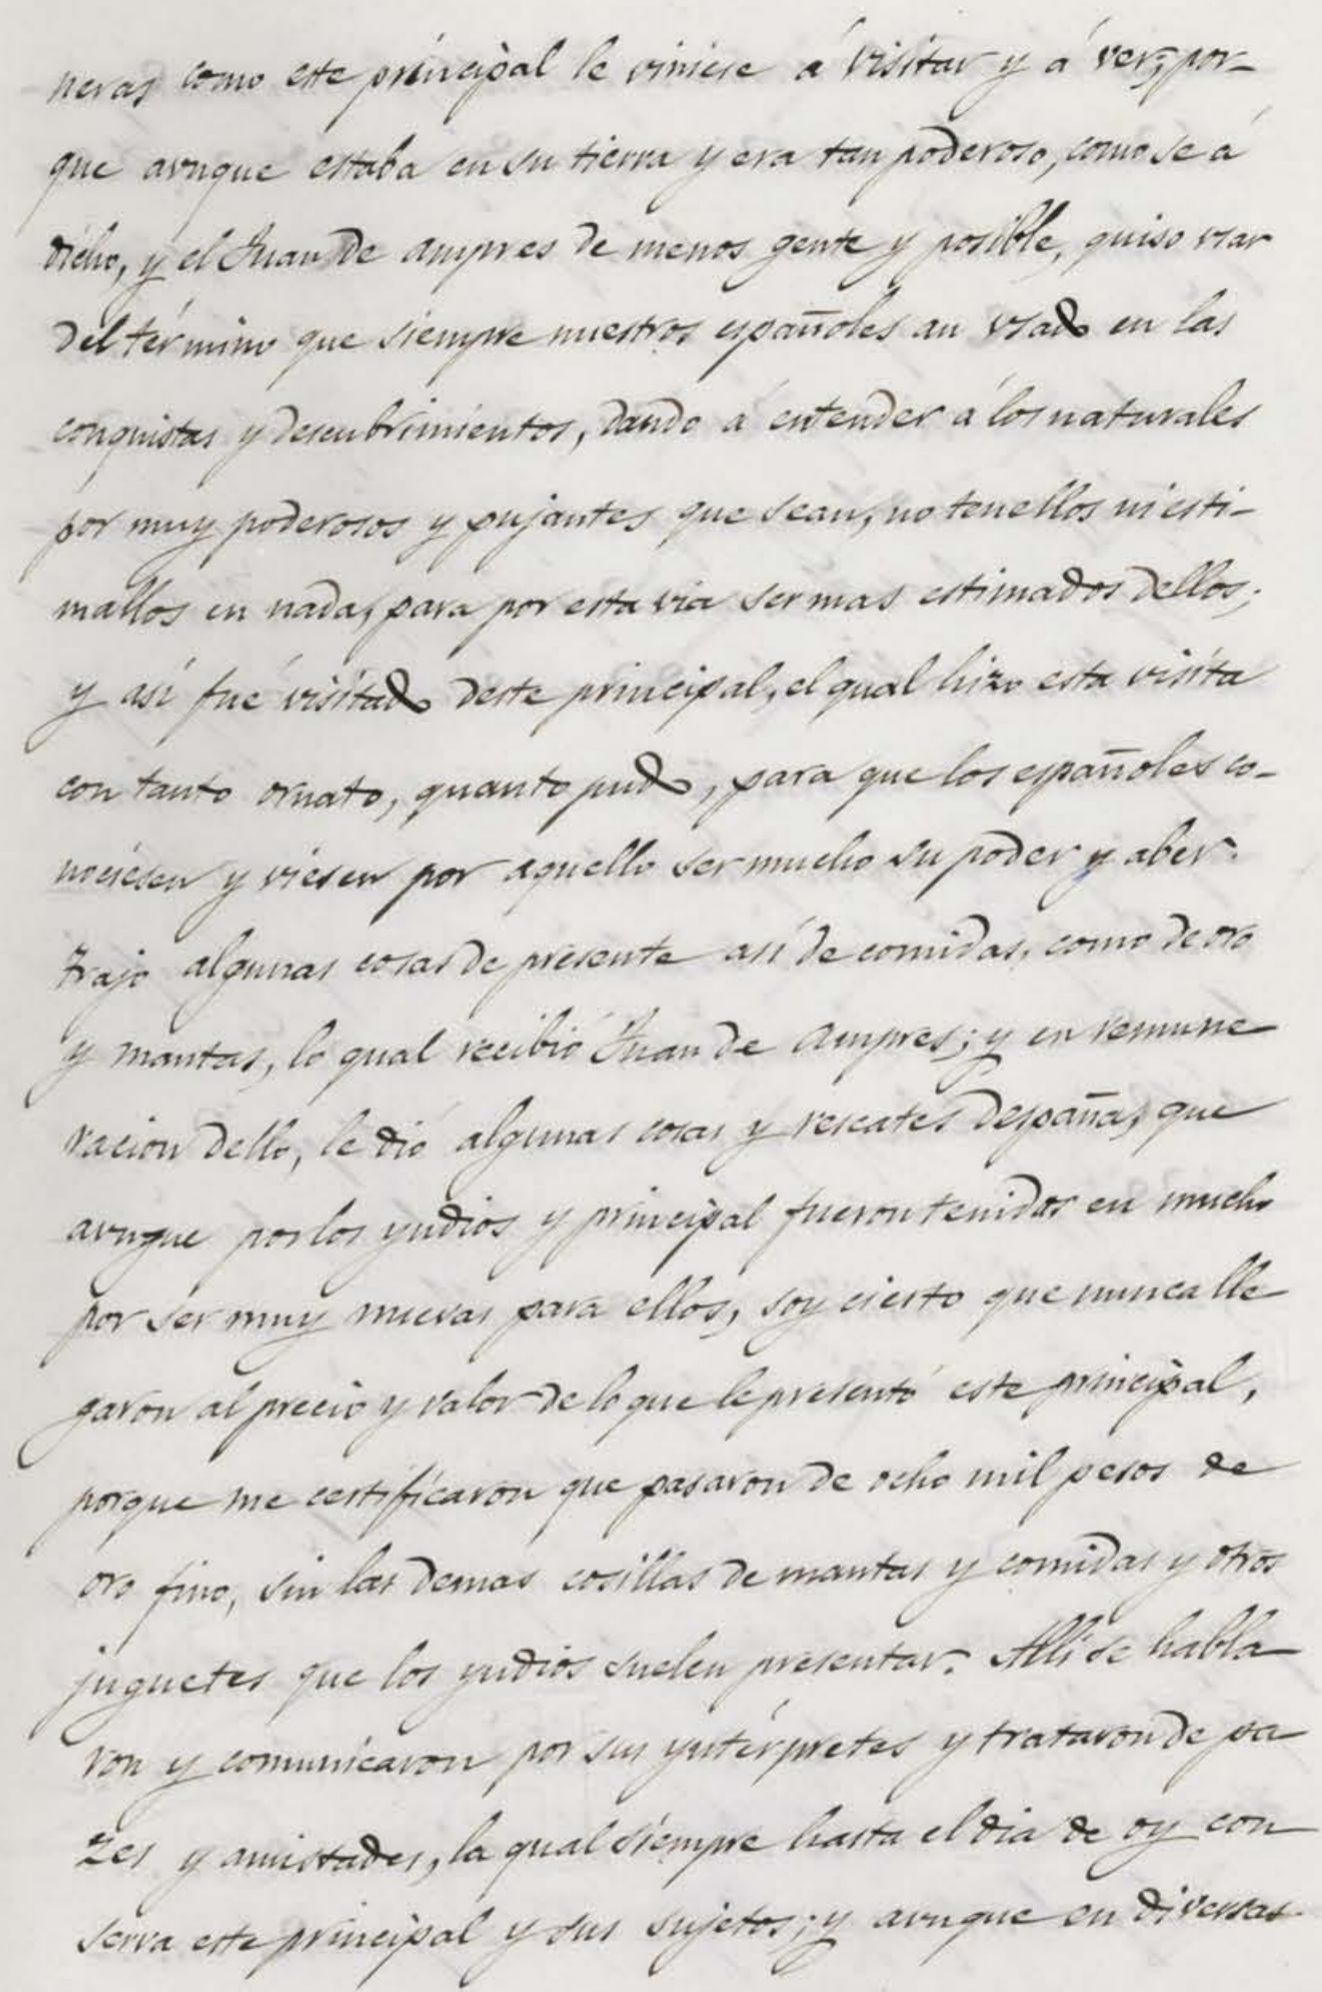 neras como este principal le viniese á visitar y á ver; por-
que avnque estaba en su tierra y era tan poderoso, como se á
dicho, y el Juan de Ampres de menos gente y posible, quiso vsar
del término que siempre nuestros españoles an vsado en las
conquistas y descubrimientos, dando á entender á los naturales
por muy poderosos y pujantes que sean, no tenellos ni esti-
mallos en nada, para por esta via ser mas estimados dellos;
y así fué visitado deste principal, el qual hizo esta visita
con tanto ornato, quanto pudo, para que los españoles co-
nociesen y viesen por aquello ser mucho su poder y aber.
Trajo algunas cosas de presente así de comidas, como de oro
y mantas, lo qual recibió Juan de Ampres; y en remune
racion dello, le dió algunas cosas y rescates despaña, que
avnque por los yndios y principal fueron tenidas en mucho
por ser muy nuevas para ellos, soy cierto que nunca lle
garon al precio y valor de lo que le presentó este principal,
porque me certificaron que pasaron de ocho mil pesos de
oro fino, sin las demas cosillas de mantas y comidas y otros
juguetes que los yndios suelen presentar. Allí se habla
ron y comunicaron por sus yntérpretes y trataron de pa
zes y amistades, la qual siempre hasta el dia de oy con
serva este principal y sus sujetos; y avnque en diversas